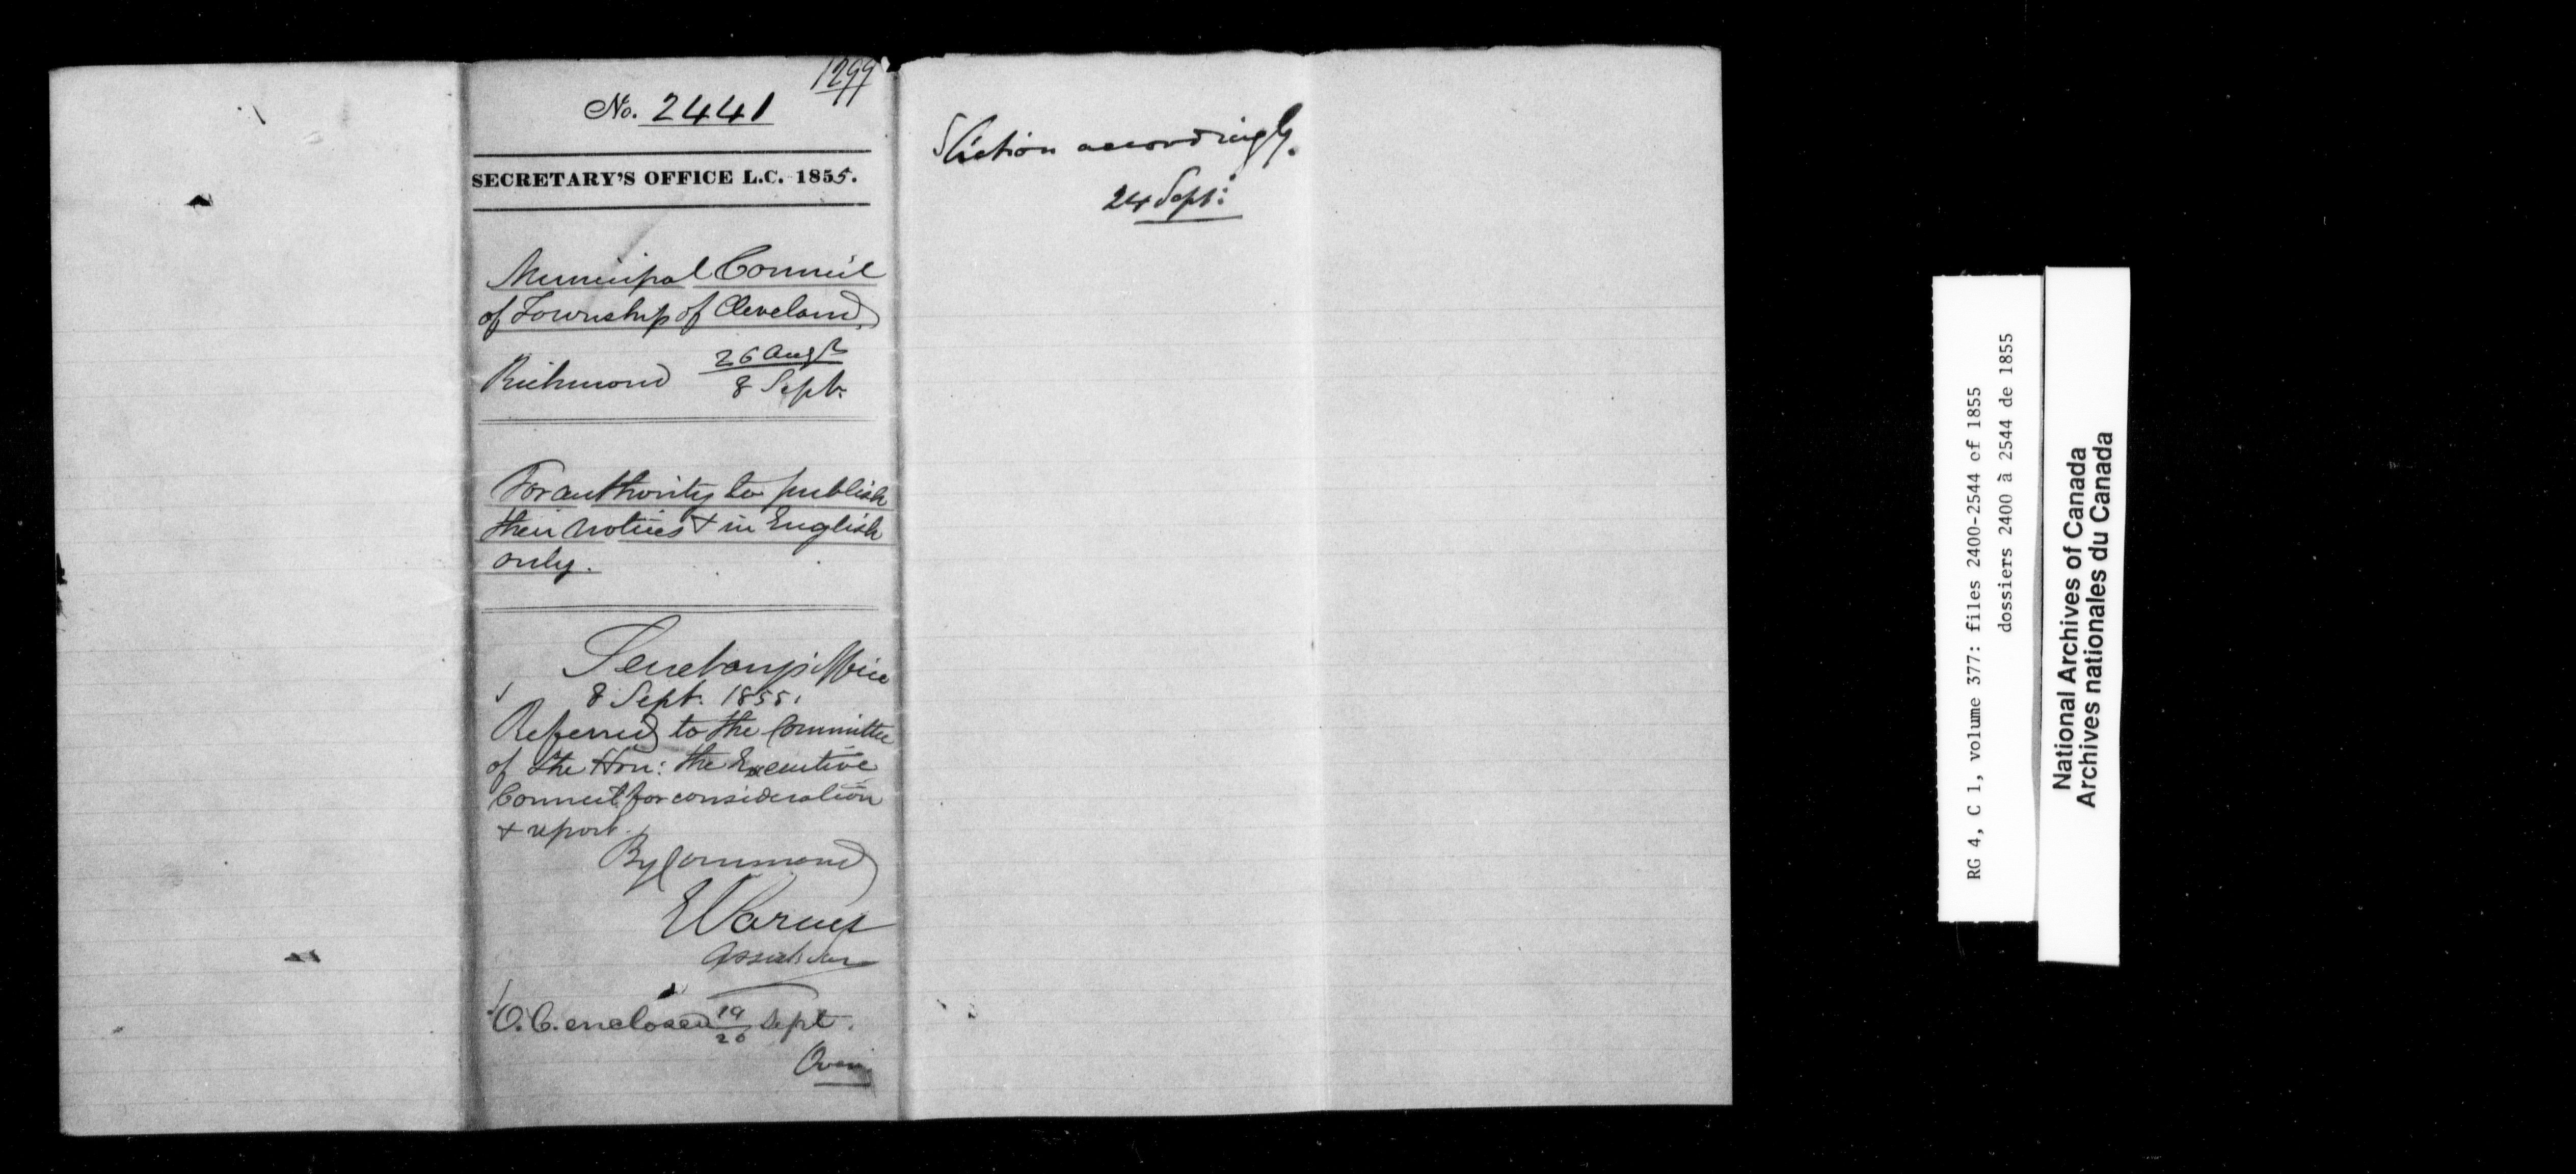 1299
No. 2441
SECRETARY'S OFFICE L.C. 1855.
Municipal Council
of Township of Cleveland,
Richmond 26 Augt
8 Sept.
For authority to publish
their notices & in English
only.
Secretary's Office
8 Sept. 1855.
Referred to the Committee
of the Hon: the Executive
Council for consideration
& report.
By Command
E Parent
Assist Sec
O.C. enclosed 19/20 Sept.
Over
Action accordingly.
24 Sept:
RG 4, C 1, volume 377: files 2400-2544 of 1855
dossiers 2400 à 2544 de 1855
National Archives of Canada
Archives nationales du Canada